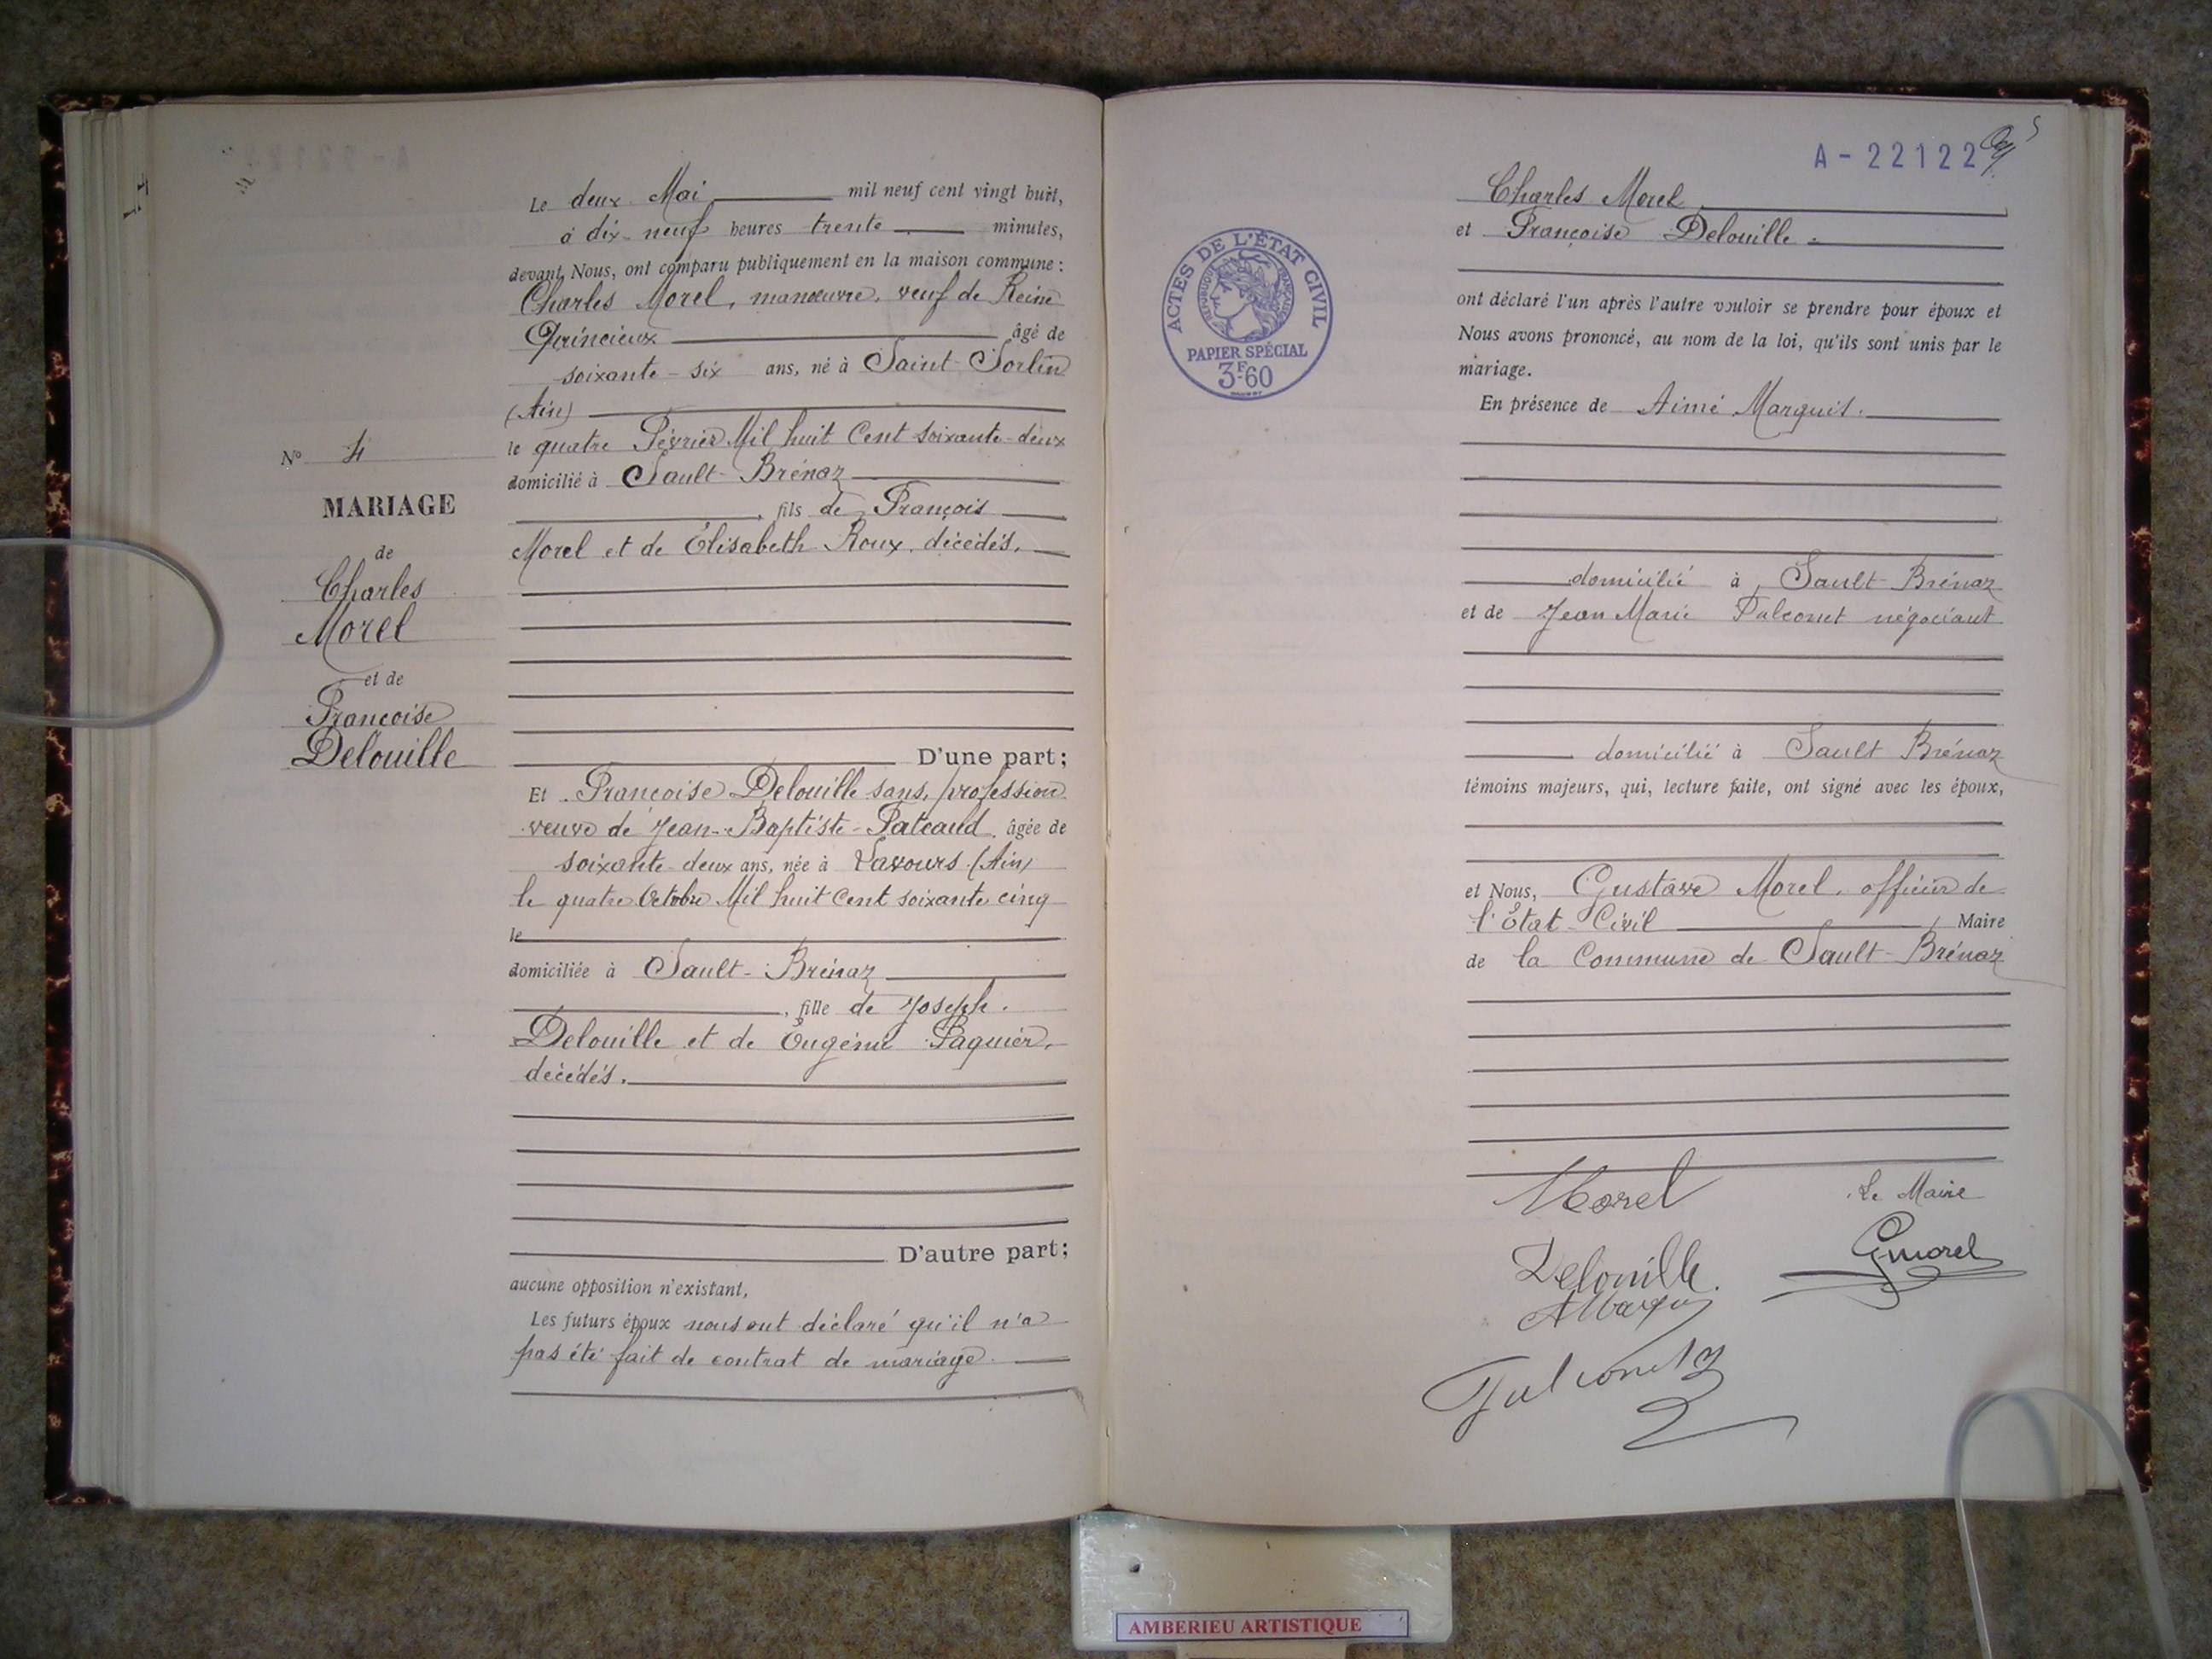 Le deux Mai mil neuf cent vingt huit,
à dix-neuf heures trente minutes,
devant Nous, ont comparu publiquement en la maison commune :
Charles Morel, manœuvre, veuf de Reine
Quincieux âgé de
soixante-six ans, né à Saint-Sorlin
(Ain)
le quatre Février Mil huit Cent soixante-deux
domicilié à Sault-Brénaz
, fils de François
Morel et de Élisabeth Roux, décédés,
D'une part;
N° 4
MARIAGE
de
Charles
Morel
et de
Françoise
Delouille
Et Françoise Delouille sans, profession
veuve de Jean-Baptiste-Pateaud, âgée de
soixante-deux ans, née à Lavours (Ain)
le quatre Octobre Mil huit Cent soixante cinq
le
domiciliée à Sault-Brénaz
, fille de Joseph
Delouille et de Eugénie Paquier,
décédés.
D'autre part;
aucune opposition n'existant,
Les futurs époux nous ont déclaré qu'il n'a
pas été fait de contrat de mariage.
A-22122
Charles Morel
et Françoise Delouille
ACTES DE L'ÉTAT CIVIL
RÉPUBLIQUE FRANÇAISE
PAPIER SPÉCIAL
3F60
ont déclaré l'un après l'autre vouloir se prendre pour époux et
Nous avons prononcé, au nom de la loi, qu'ils sont unis par le
mariage.
En présence de Aimé Marquis.
domicilié à Sault-Brénaz
et de Jean Marie Falconet négociant
domicilié à Sault Brénaz
témoins majeurs, qui, lecture faite, ont signé avec les époux,
et Nous, Gustave Morel, officier de
l'État Civil Maire
de la Commune de Sault-Brénaz
Morel
Le Maire
Delouille.
GMorel
AMarquis
Falconet
AMBERIEU ARTISTIQUE